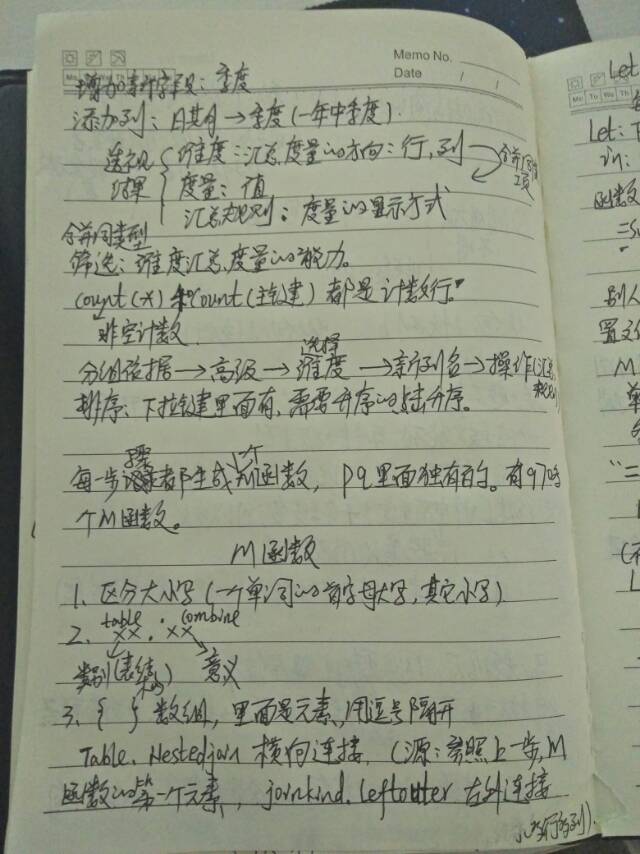 Memo No.
Date / /
Mo Tu We Th
增加新字段：季度
添加列：日期 → 季度（一年中季度）.
透视结果 { 维度：汇总度量的方向：行，列
合并同
度量：值
汇总规则：度量的显示方式
合并同类型
筛选：维度汇总度量的能力。
count（*）和count（主键）都是计数行。
非空计数
选择
分组依据 → 高级 → 维度 → 新列名 → 操作（汇总规则）
排序：下拉键里面有，需要升序的点升序。
步骤 一个
每一步都生成M函数，PQ里面独有的。有970多
个M函数。
M函数
1、区分大小写（一个单词的首字母大写，其它小写）
table . combine
2、xx . xx
类别（表结构） 意义
3、{ } 数组，里面是元素，用逗号隔开
Table. Nestedjoin 横向连接.（源：参照上一步，M
函数的第一个元素，joinkind. Leftoutter 左外连接
Let
Let：
函数
别人
置文
M